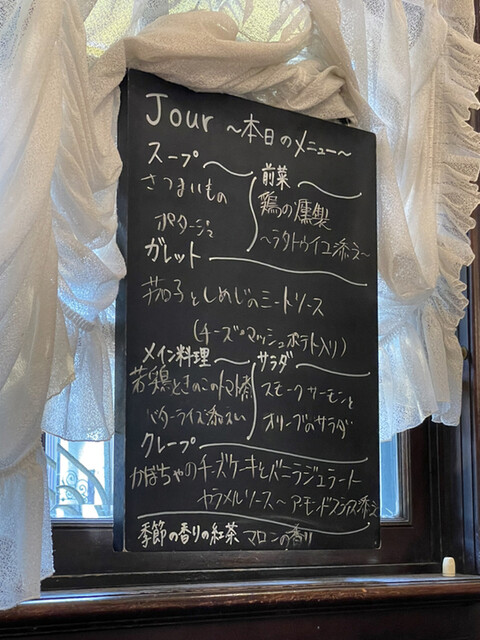 Jour ～本日のメニュー～
スープ
さつまいもの
ポタージュ
前菜
鶏の燻製
～ラタトゥイユ添え～
ガレット
茄子としめじのミートソース
(チーズ・マッシュポテト入り)
メイン料理
若鶏ときのこのトマト煮
バターライス添え
サラダ
スモークサーモンと
オリーブのサラダ
クレープ
かぼちゃのチーズケーキとバニラジェラート
キャラメルソース～アーモンドスライス添え
季節の香りの紅茶 マロンの香り